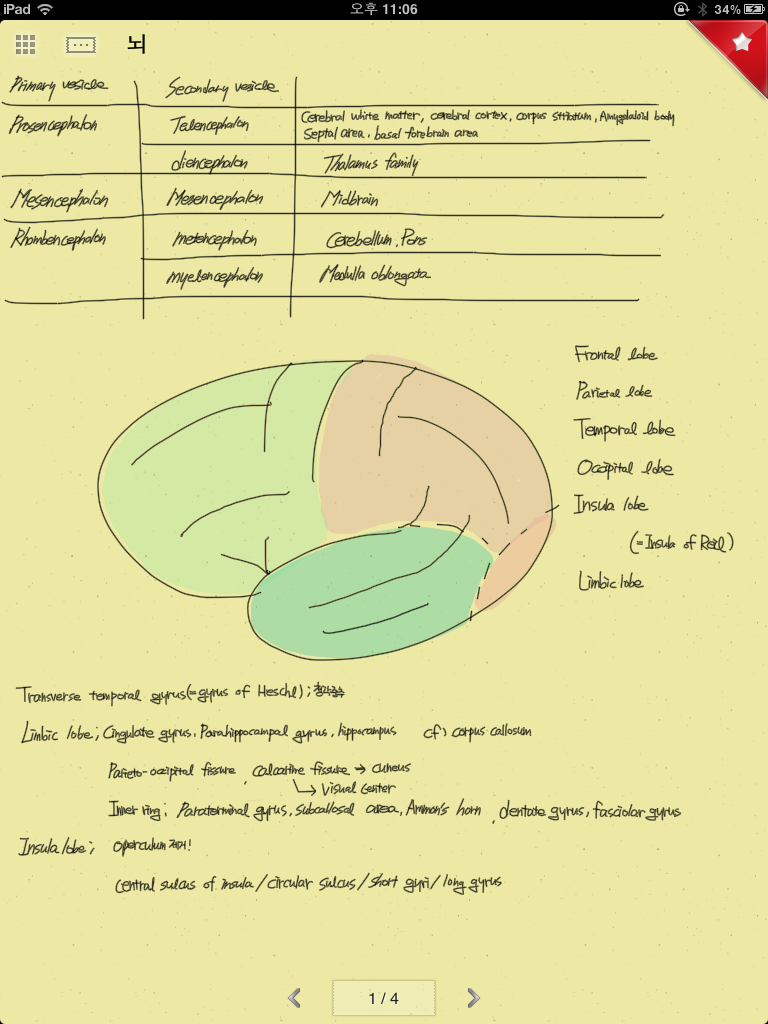 iPad 오후 11:06 34%
뇌
Primary vesicle Secondary vesicle
Prosencephalon Telencephalon Cerebral white matter, cerebral cortex, corpus striatum, Amygdaloid body
Septal area, basal forebrain area
diencephalon Thalamus family
Mesencephalon Mesencephalon Midbrain
Rhombencephalon metencephalon Cerebellum, Pons
myelencephalon Medulla oblongata
Frontal lobe
Parietal lobe
Temporal lobe
Occipital lobe
Insula lobe
(=Insula of Reil)
Limbic lobe
Transverse temporal gyrus(=gyrus of Heschl);
Limbic lobe; Cingulate gyrus, Parahippocampal gyrus, hippocampus cf) corpus callosum
Parieto-occipital fissure, calcarine fissure → cuneus
↳ Visual center
Inner ring; Paraterminal gyrus, subcallosal area, Ammon's horn, dentate gyrus, fasciolar gyrus
Insula lobe; operculum 제거!
central sulcus of insula/circular sulcus/short gyri/long gyrus
1 / 4